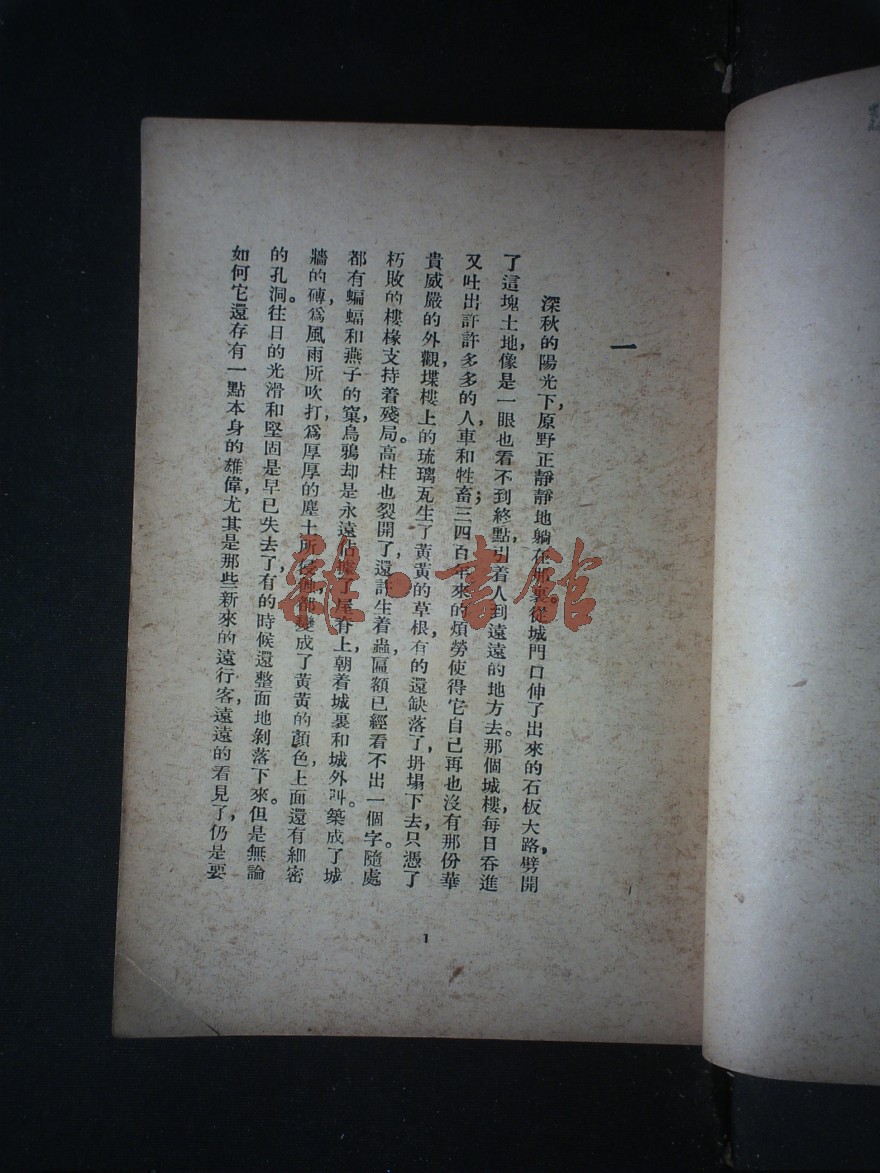 一
深秋的陽光下，原野正靜靜地躺在那裏。從城門口伸了出來的石板大路，劈開
了這塊土地，像是一眼也看不到終點，引着人到遠遠的地方去。那個城樓，每日吞進
又吐出許許多多的人，車和牲畜；三四百年來的煩勞使得它自己再也沒有那份華
貴威嚴的外觀，堞樓上的琉璃瓦生了黃黃的草根，有的還缺落了，坍塌下去，只憑了
朽敗的樓椽支持着殘局。高柱也裂開了，還許生着蟲，匾額已經看不出一個字。隨處
都有蝙蝠和燕子的窠，烏鴉却是永遠佔據了屋脊上，朝着城裏和城外叫。築成了城
牆的磚，爲風雨所吹打，爲厚厚的塵土所侵蝕，都變成了黃黃的顏色，上面還有細密
的孔洞。往日的光滑和堅固是早已失去了，有的時候還整面地剝落下來。但是無論
如何它還存有一點本身的雄偉，尤其是那些新來的遠行客，遠遠的看見了，仍是要
1
雜·書館